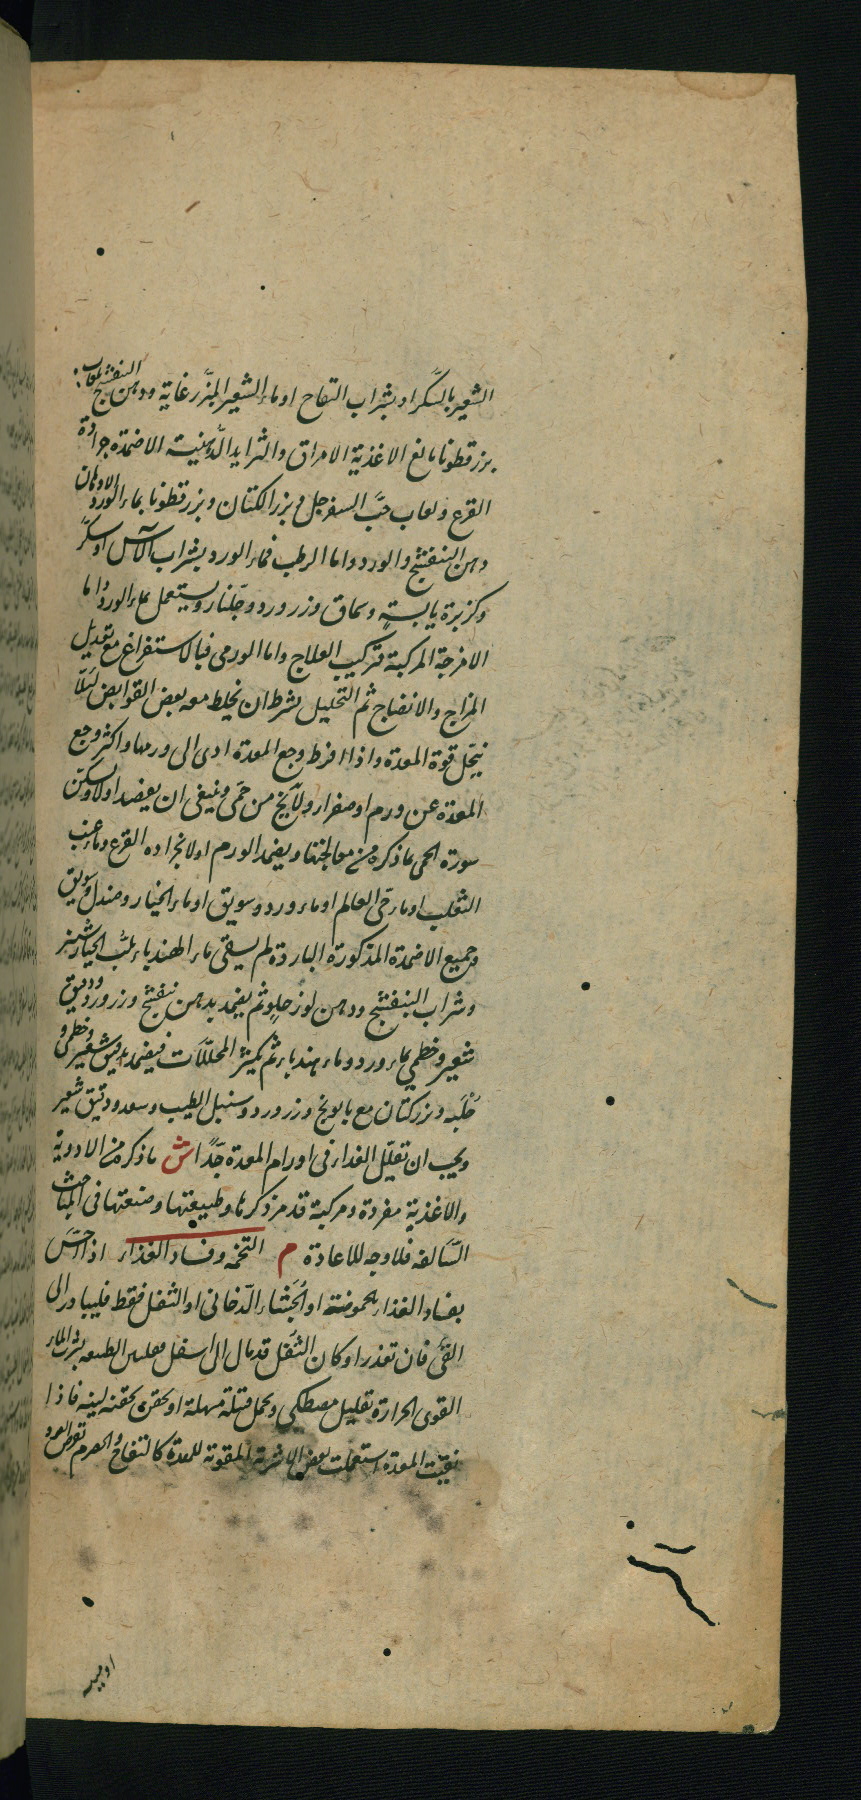 الشعير بالسكر او بشراب التفاح او ماء الشعير المبزر غاية ودهن البنفشج لعاب
بزر قطونا مانع الاغذية الامراق والثرايد الدهنية الاضمدة جرادة
القرع ولعاب حب السفرجل وبزر الكتان وبزر قطونا بماء الورد الادهان
دهن البنفشج والورد واما الرطب فماء الورد بشراب الآس او سكر
وكزبرة يابسة وسماق وزر ورد وجلنار ويستعمل بماء الورد واما
الامزجة المركبة تركيب العلاج واما الورمي فبالاستفراغ مع تعديل
المزاج والانضاج ثم التحليل بشرط ان يخلط معه بعض القوابض لئلا
تنحل قوة المعدة واذا افرط وجع المعدة ادى الى ورمها واكثر وجع
المعدة عن ورم او صفراء ولا يخ من حمى وينبغى ان يفصد اولا ويسكن
سورة الحمى بما ذكر من معالجتها ويضمد الورم اولا بجرادة القرع وماء عنب
الثعلب او ماء حي العالم او ماء ورد وسويق او ماء الخيار وصندل وسويق
وجميع الاضمدة المذكورة الباردة ثم يسقى ماء الهندباء بلب الخيارشنبر
وشراب البنفشج ودهن لوز حلو ثم يضمد بدهن بنفشج وزر ورد ودقيق
شعير وخطمي بماء ورد وماء هندباء ثم يكثر المحللات فيضمد بدقيق شعير وخطمى و
حلبه وبزر كتان مع بابونج وزر ورد وسنبل الطيب وسعد ودقيق شعير
ويجب ان تقلل الغداء فى اورام المعدة جدًا ش ما ذكر من الادوية
والاغذية مفردة ومركبة قد مر ذكرها وطبيعتها وصنعتها فى المباحث
السالفه فلا وجه للاعادة م التخمه وفساد الغذاء اذا احس
بفساد الغذاء بحموضته او الجشاء الدخانى او الثقل فقط فليبادر الى
القئ فان تعذر او كان الثقل قد مال الى اسفل الطبيعه بشرب الماء
القوى الحرارة بقليل مصطكى ويحمل فتيلة مسهلة او يحقن بحقنه لينه فاذا
نقيت المعدة استعملت بعض الاشربة المقوية للمعدة كالتفاح والحصرم